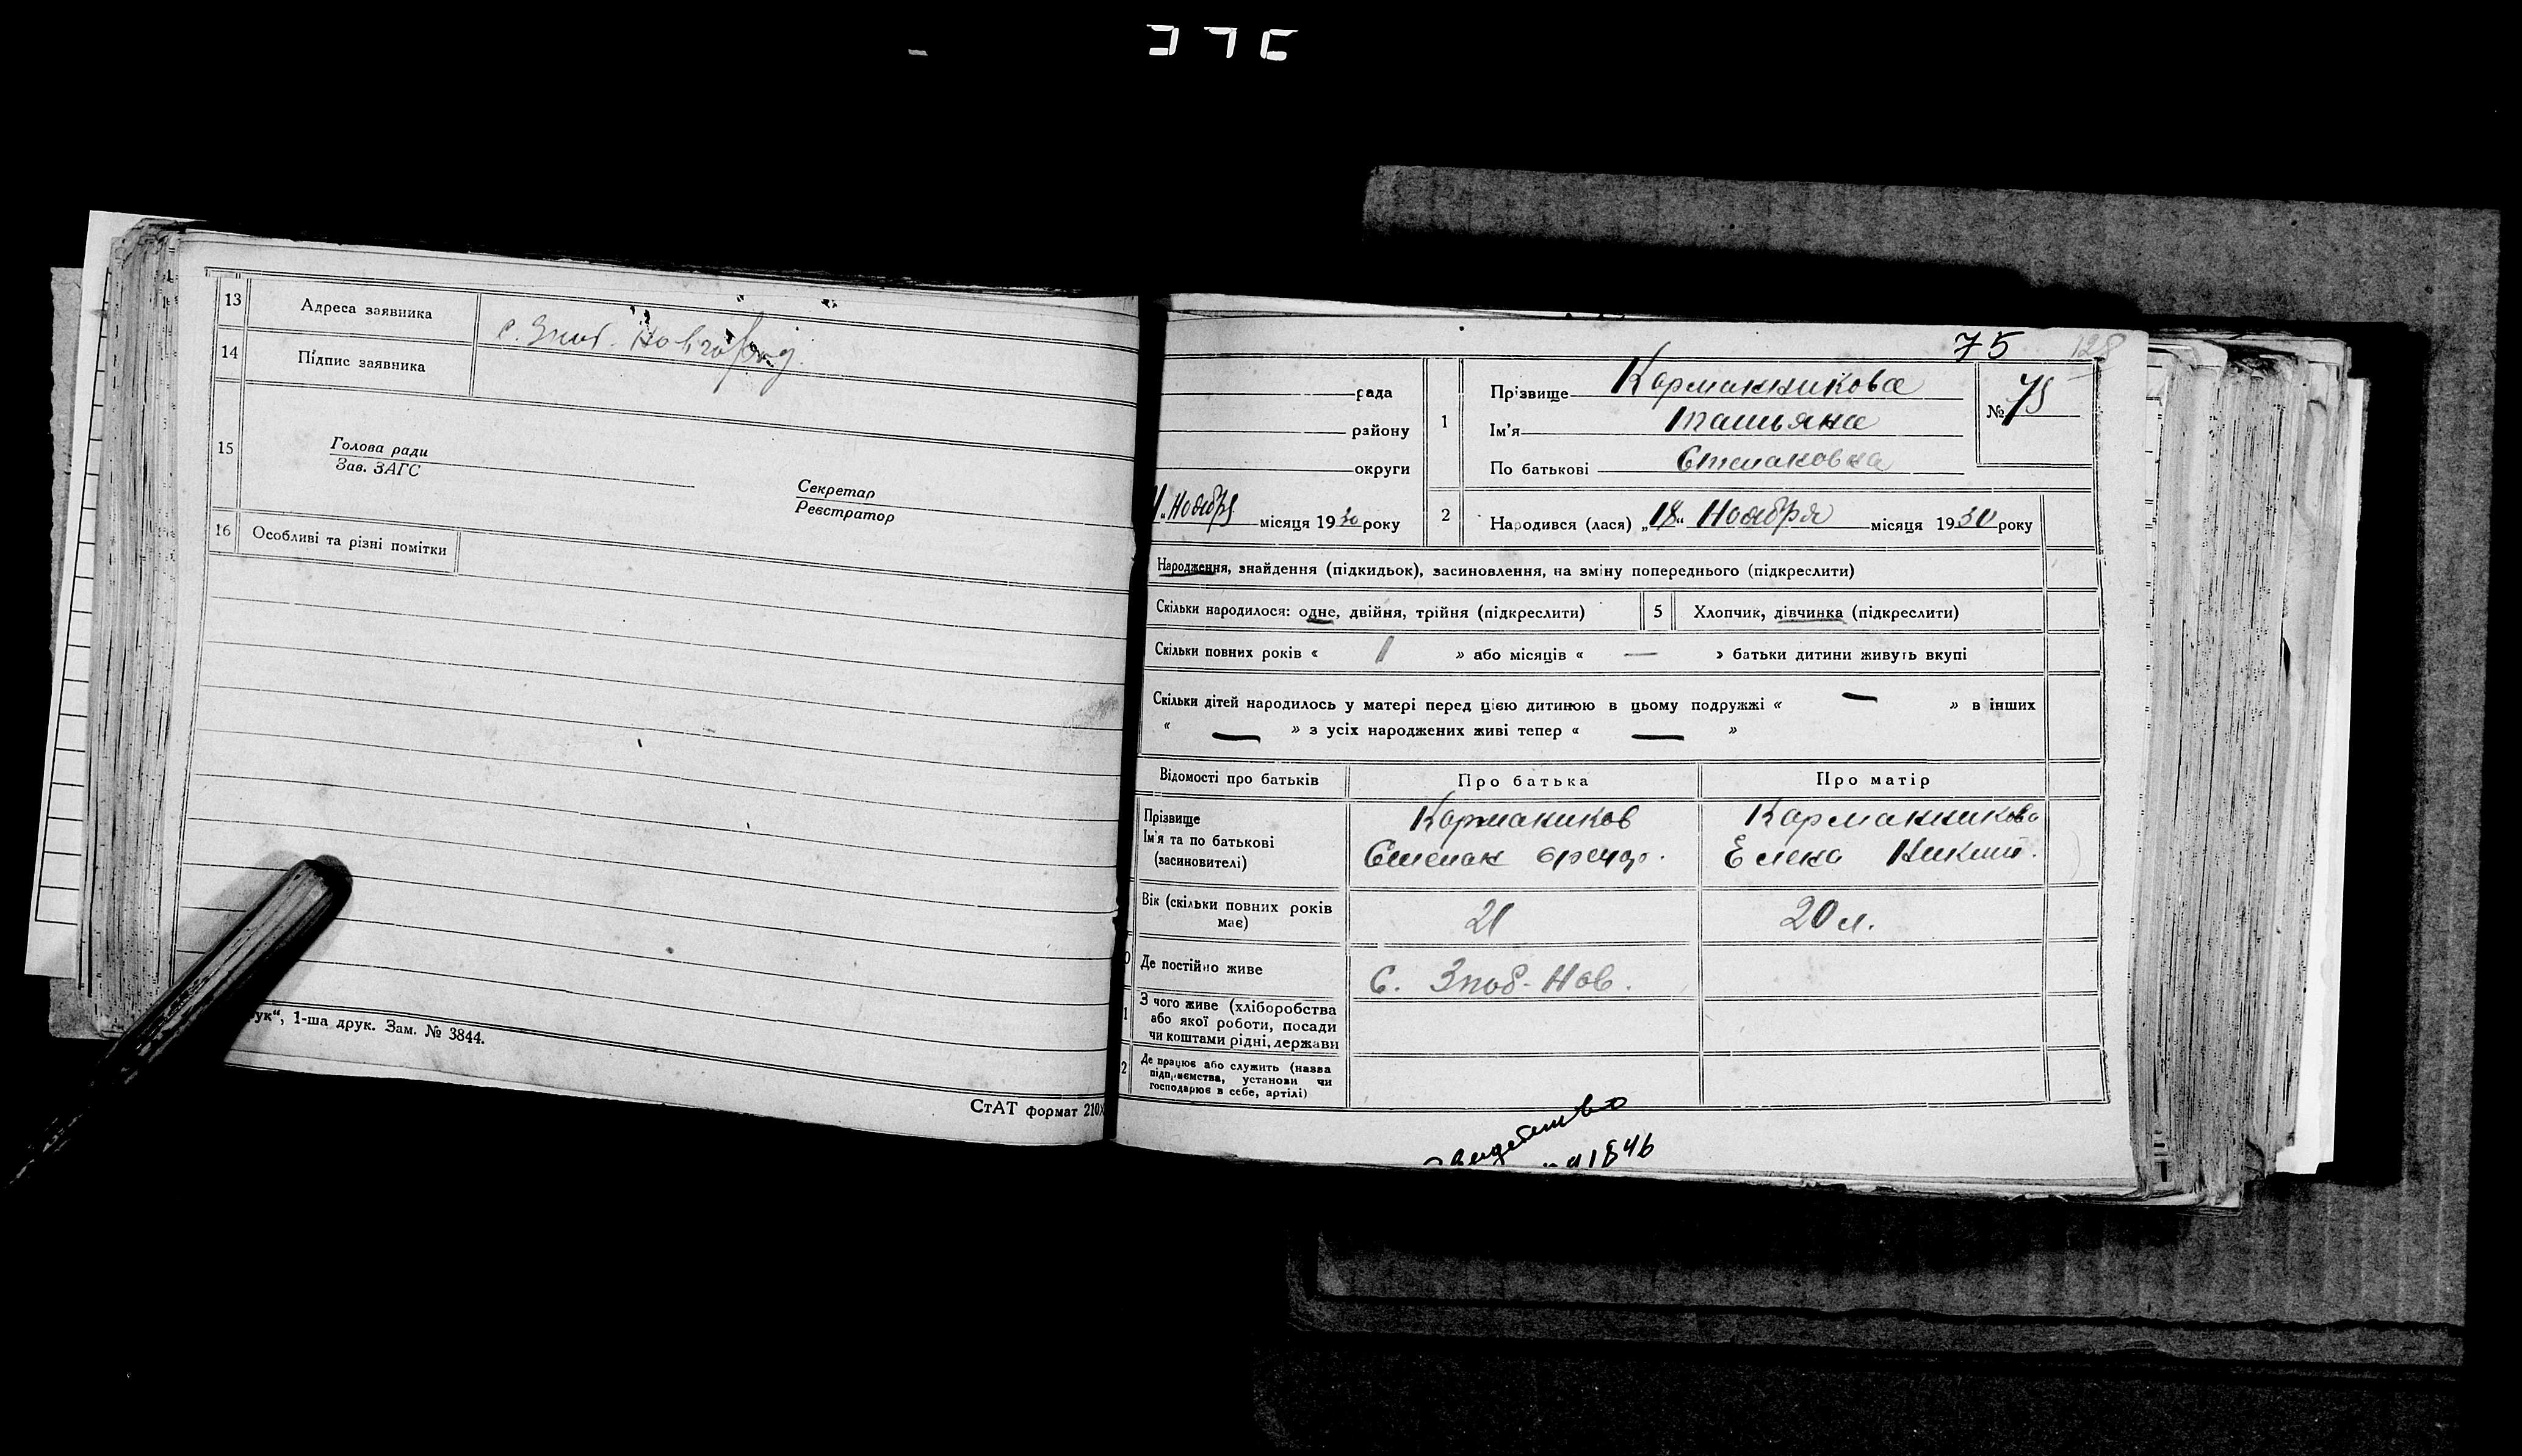 13 Адреса заявника с. Зноб. Новгород.
14 Підпис заявника
15 Голова ради
Зав. ЗАГС
Секретар
Реєстратор
16 Особливі та різні помітки
ук“, 1-ша друк. Зам. № 3844.
СтАТ формат 210
75 128
рада
району
округи
Ноября місяця 1930 року
1 Прізвище Корманникова
Ім'я Татьяна
По батькові Степановна
№ 75
2 Народився (лася) „18“ Ноября місяця 1930 року
Народження, знайдення (підкидьок), засиновлення, на зміну попереднього (підкреслити)
Скільки народилося: одне, двійня, трійня (підкреслити) 5 Хлопчик, дівчинка (підкреслити)
Скільки повних років « 1 » або місяців « — » батьки дитини живуть вкупі
Скільки дітей народилось у матері перед цією дитиною в цьому подружжі « — » в інших
« — » з усіх народжених живі тепер « — »
Відомості про батьків Про батька Про матір
Прізвище Кормаников Корманникова
Ім'я та по батькові Степан Елена Никит.
(засновителі)
Вік (скільки повних років 21 20 л.
має)
Де постійно живе С. Зноб-Нов.
З чого живе (хліборобства
або якої роботи, посади
чи коштами рідні, держави
2 Де працює або служить (назва
підприємства, установи чи
господарює в себе, артілі)